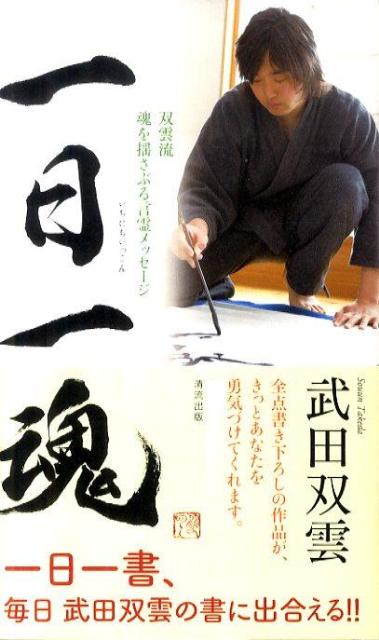 一日一魂
いちにちいっこん
双雲流
魂を揺さぶる言霊メッセージ
Souun Takeda
武田双雲
全点書き下ろしの作品が、
きっとあなたを
勇気づけてくれます。
清流出版
一日一書、
毎日 武田双雲の書に出合える!!